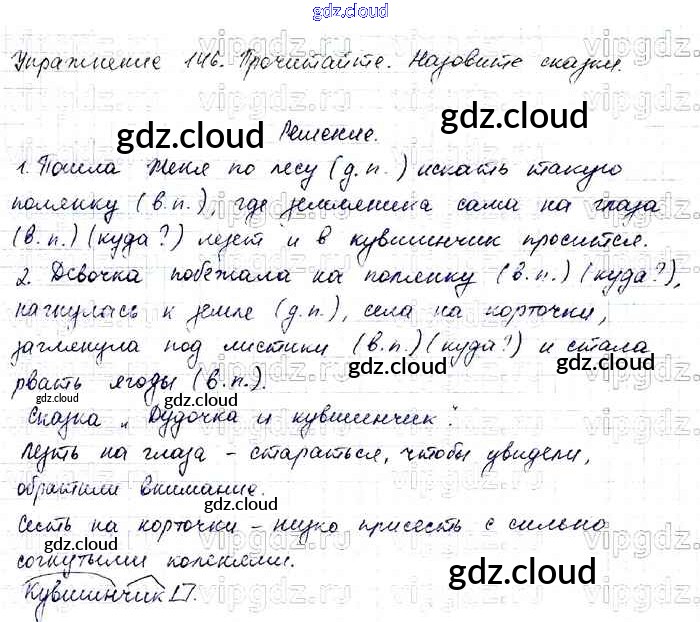 gdz.cloud
Упражнение 146. Прочитайте. Назовите сказки.
Решение.
1. Пошла Женя по лесу (д.п.) искать такую
полянку (в.п.), где земляника сама на глаза
(в.п.) (куда?) лезет и в кувшинчик просится.
2. Девочка побежала на полянку (в.п.) (куда?),
нагнулась к земле (д.п.), села на корточки,
заглянула под листики (в.п.) (куда?) и стала
рвать ягоды (в.п.).
Сказка „Дудочка и кувшинчик".
Лезть на глаза – стараться, чтобы увидели,
обратили внимание.
Сесть на корточки – низко присесть с сильно
согнутыми коленями.
Кувшинчик